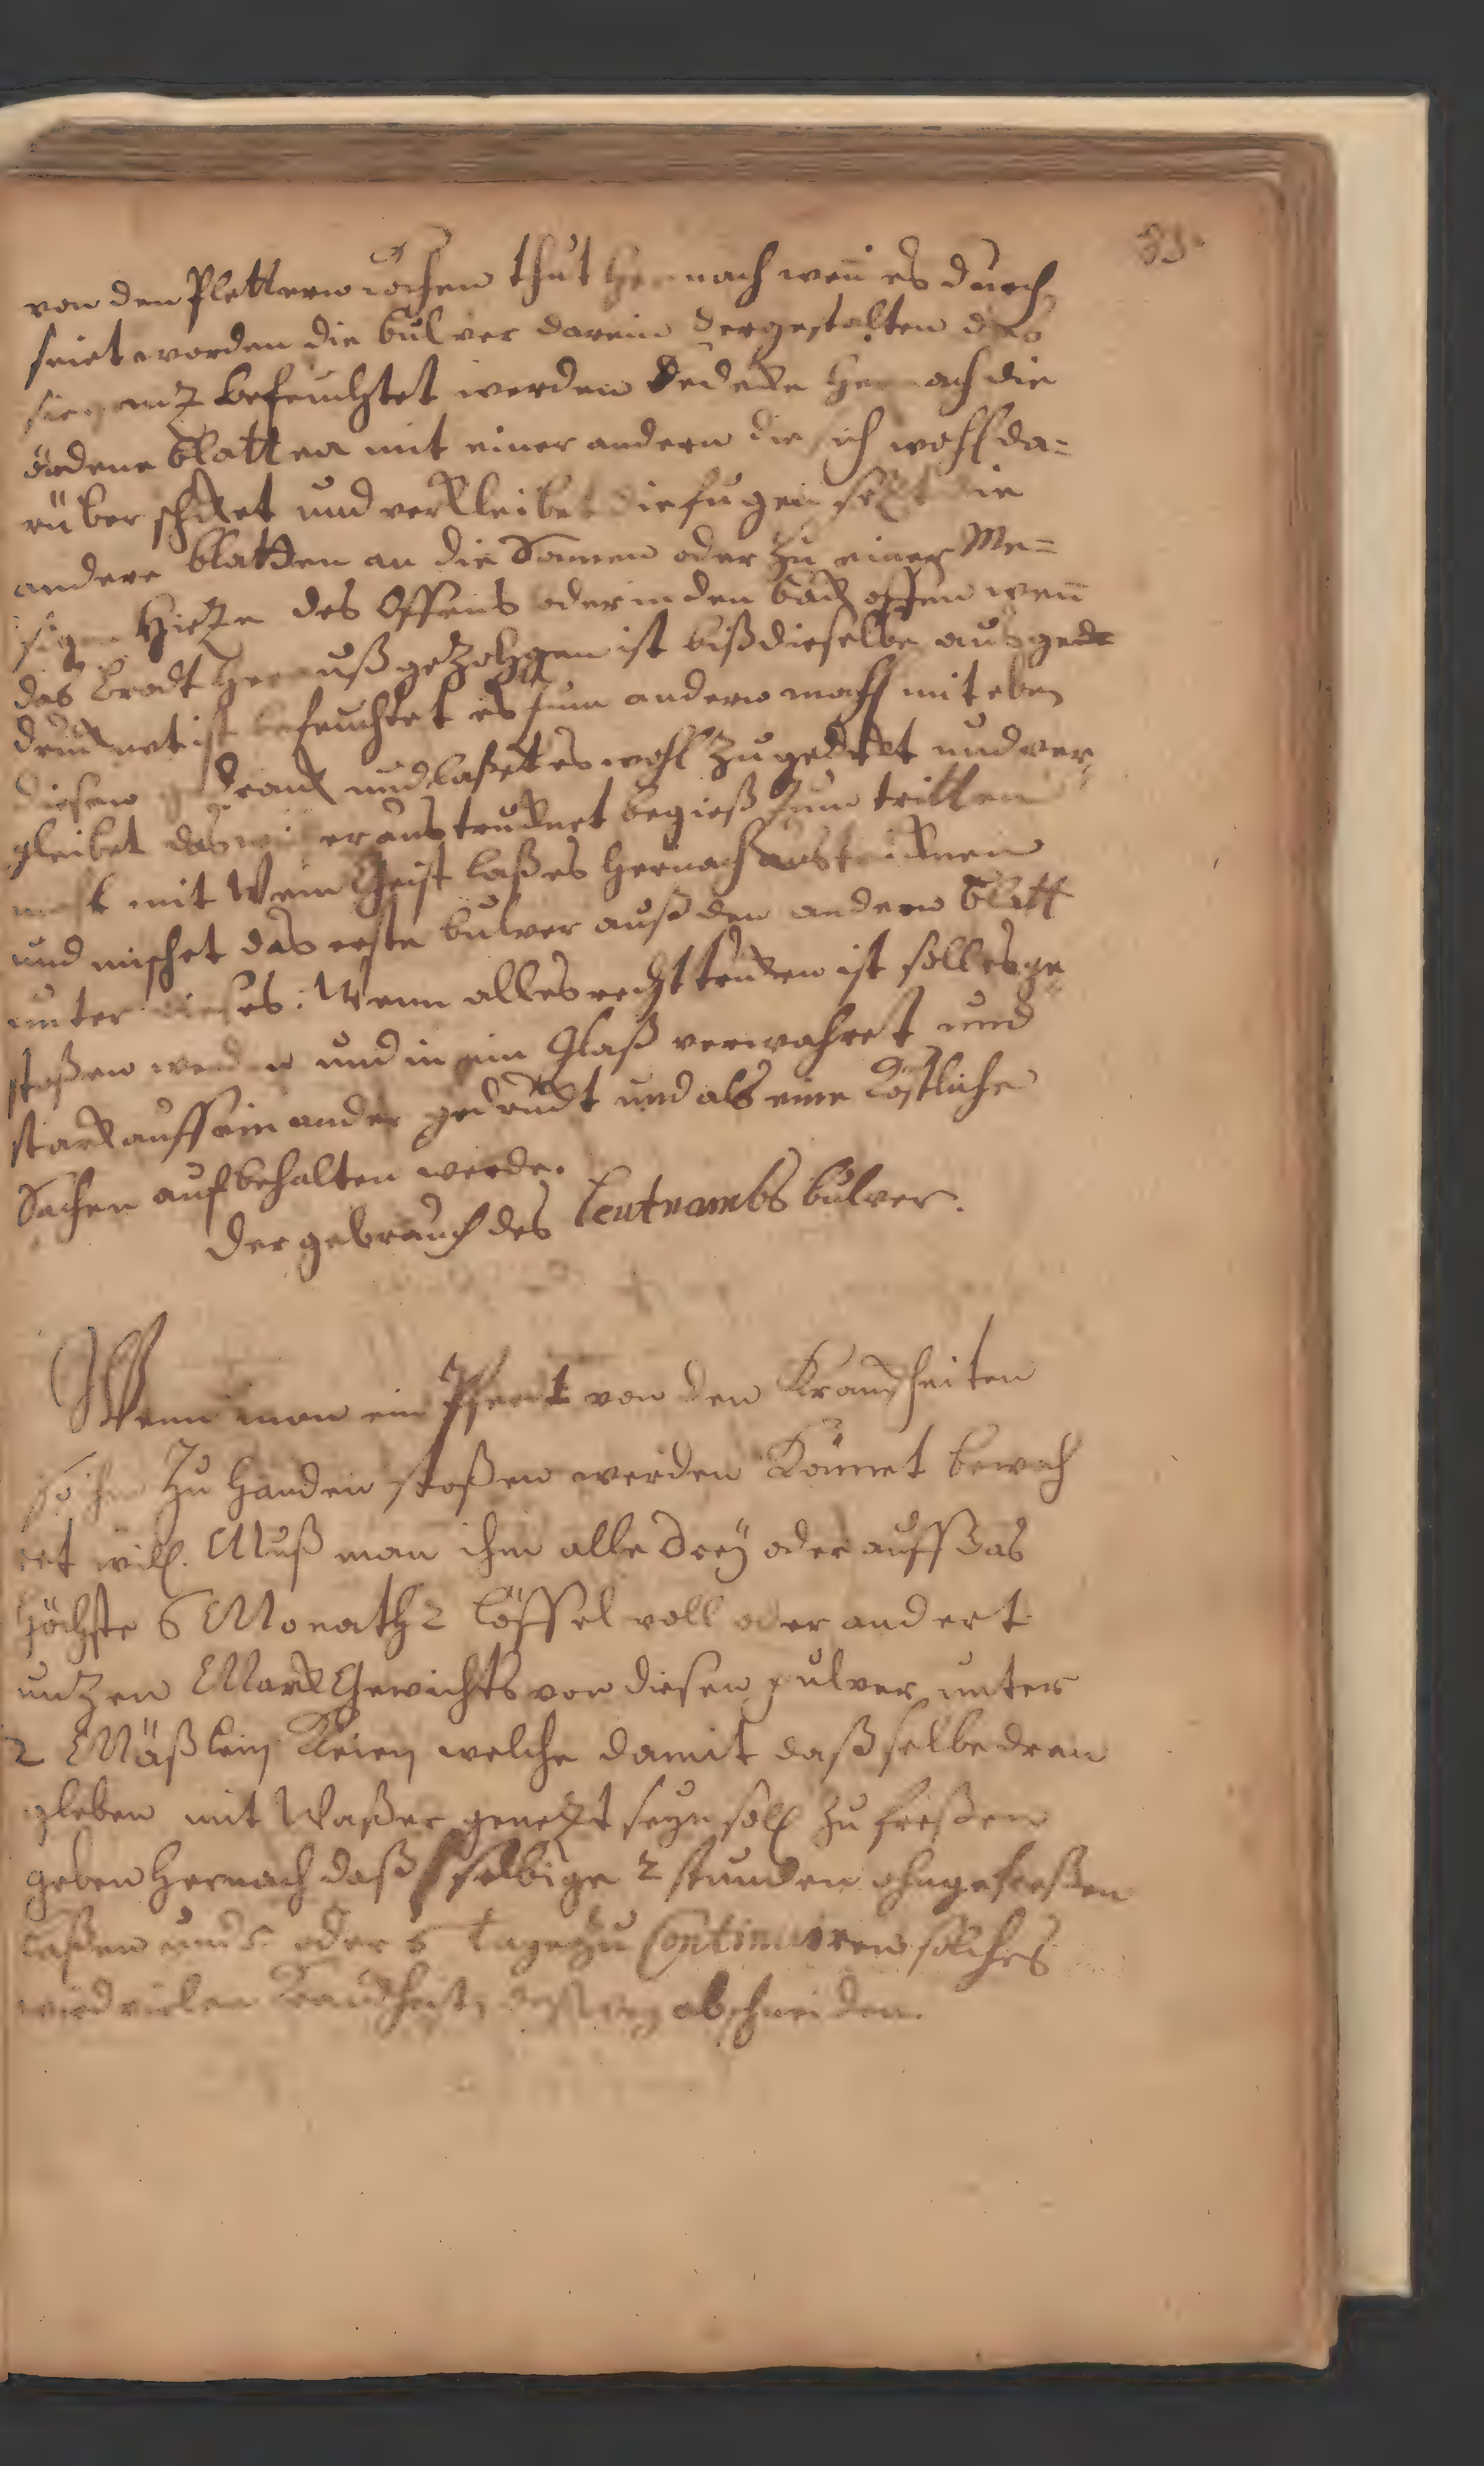 von den Plettern kochen thut hernach wen̄ es durch
seiet worden die bulver darein dergestalten das
sie gantz befeuchtet werden Bedecke hernach die
ördene blatten mit einer andern die sich wohl da=
rüber schiket und verkleibet die fugen setzt die
andere blatten an die Sonnen oder zu einer Me=
sigen Hietze des Offens oder in den back offen wen̄
das brodt herauß gezohgen ist biß dieselbe aus ge
druknet ist befeuchtet es zum andern mahl mit eben
diesen gedrank und laßet es wohl zugedekt und ver
gleibet das wider austruknet begieß zum tritten
mahl mit Wein Geist laß es hernach austruknen
und mischet das erste bulver auß den andern blatt
unter dieses. Wenn alles recht truken ist soll es ge
stoßen werden und in ein Glaß verwahret und
stark auff ein ander gedrukt und als eine Köstliche
Sachen aufbehalten werde.
Der gebrauch des Leutnambs bulver.
Wenn man ein Pfert von den Krankheiten
so ihm zu handen stoßen werden Könnet bewah
ret will. Muß man ihm alle drey oder auff das
höchste 6 Monath 2 löffel voll oder andert
untzen Mark Gewichts von diesen pulver unter
2 Mäßlein Kleien welche damit daß selbe dran
gleben mit Waßer genetzt seyn soll zu freßen
geben hernach daß selbige 2 stunden ohngefreßen
laßen und 5 oder 6 tage zu Continuiren solches
wird vielen Krankheiten den weg abschneiden.